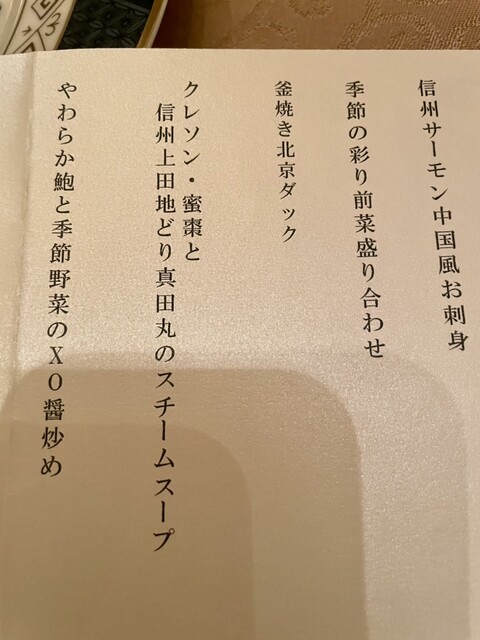 信州サーモン中国風お刺身
季節の彩り前菜盛り合わせ
釜焼き北京ダック
クレソン・蜜棗と
信州上田地どり真田丸のスチームスープ
やわらか鮑と季節野菜のXO醤炒め